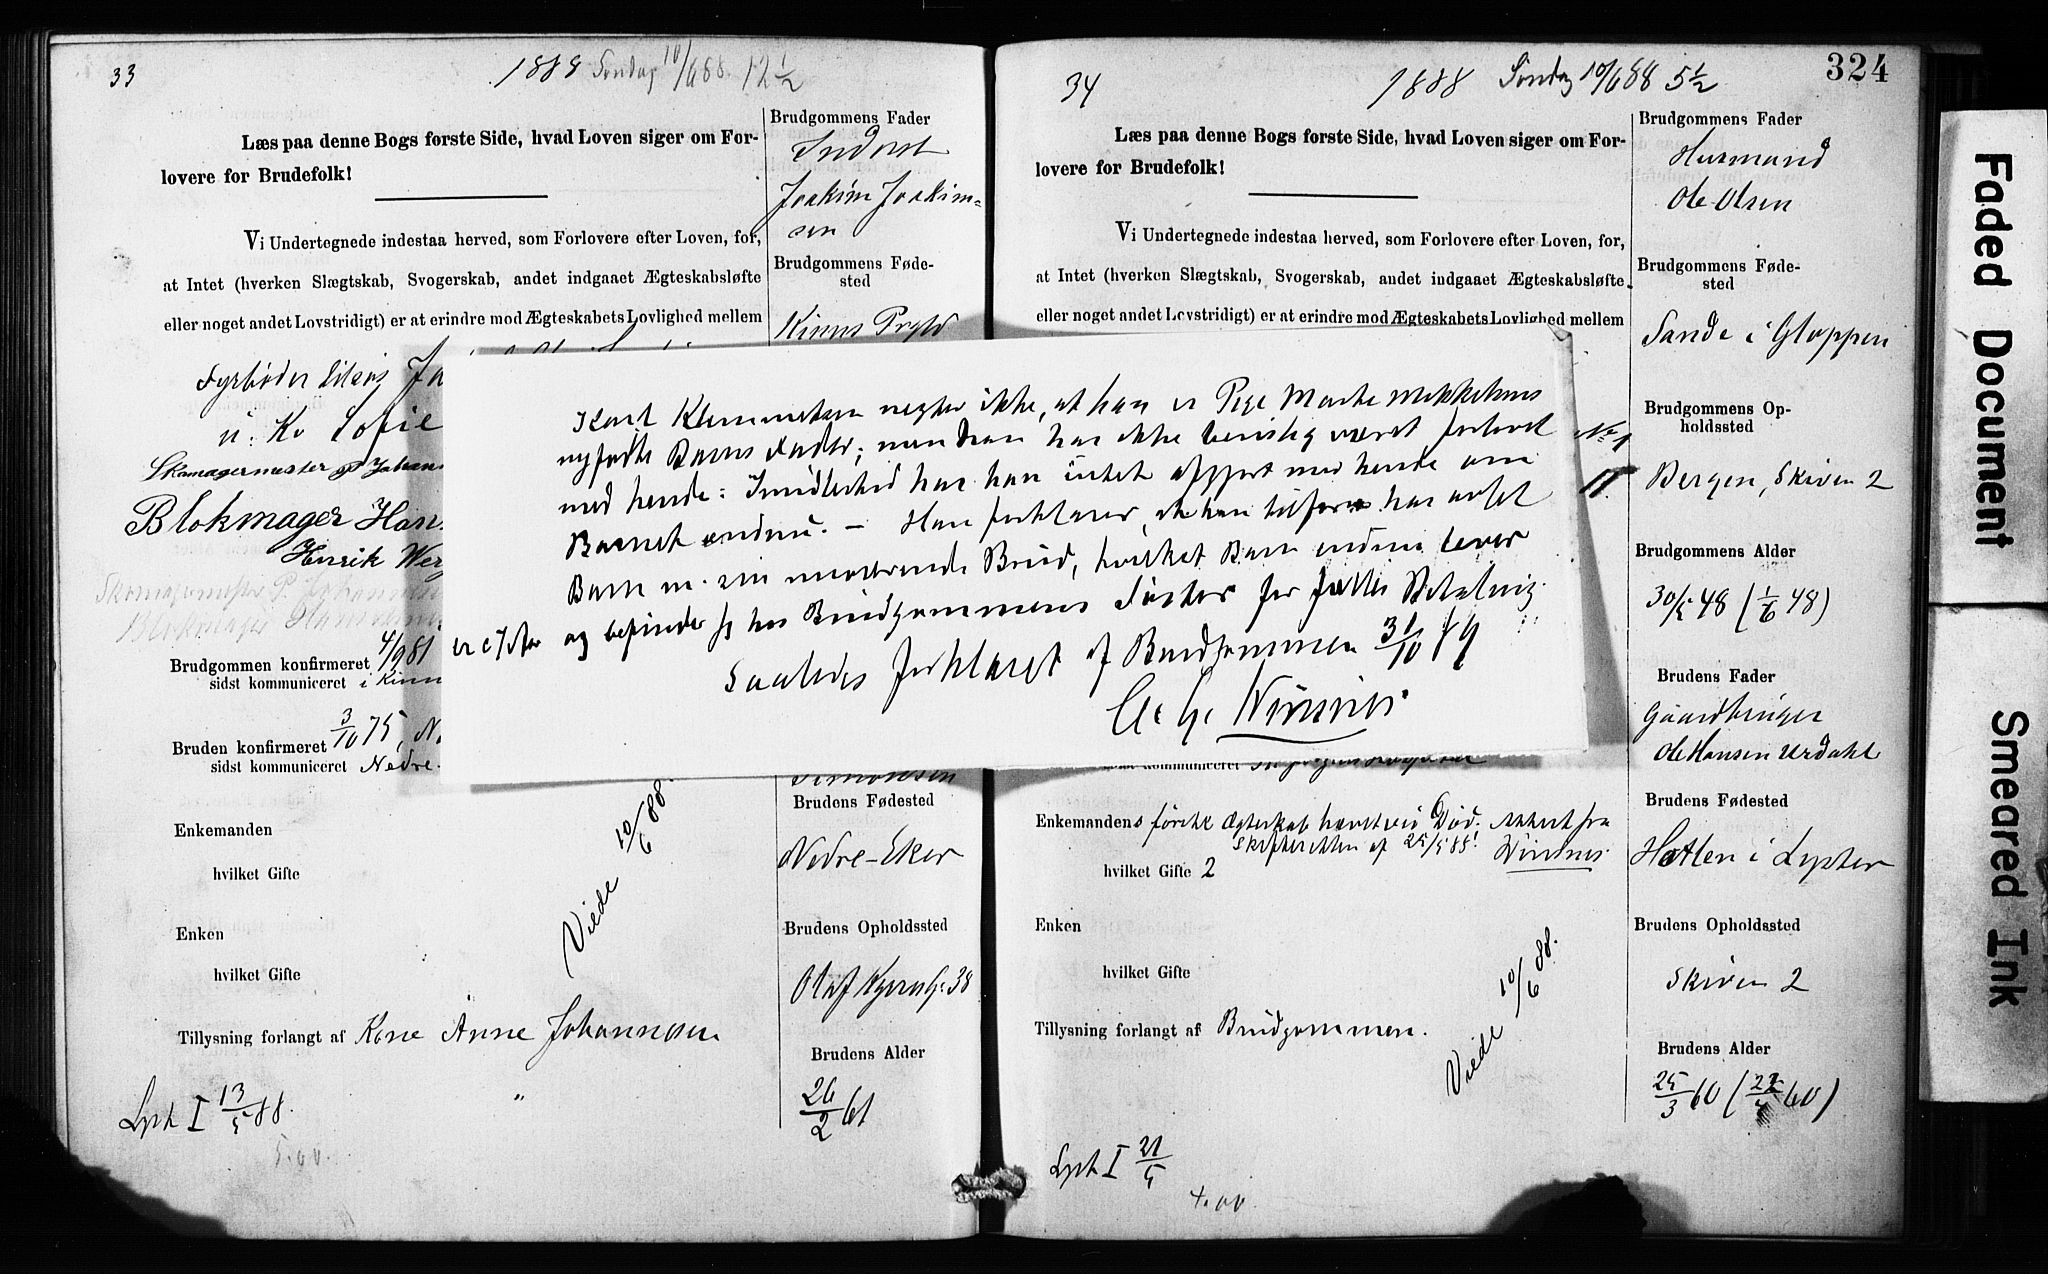 33
1888 Søndag 10/6 88. 12 1/2
Læs paa denne Bogs første Side, hvad Loven siger om For-
lovere for Brudefolk!
Vi Undertegnede indestaa herved, som Forlovere efter Loven, for,
at Intet (hverken Slægtskab, Svogerskab, andet indgaaet Ægteskabsløfte
eller noget andet Lovstridigt) er at erindre mod Ægteskabets Lovlighed mellem
Fyrbøder
u. K. Sofie
Skomagermester P Johan
Blokmager Han
Henrik Wer
Skomagermester P. Johannesen
Blokmager
Brudgommen konfirmeret 4/9 81
sidst kommuniceret i Kinn
Bruden konfirmeret 3/10 75, N
sidst kommuniceret Nedre-
Enkemanden
hvilket Gifte
Viede 10/6 88.
Enken
hvilket Gifte
Tillysning forlangt af Kone Anne Johannesen
Lyst I 13/5 88.
5.00.
Brudgommens Fader
Inderst
Joakim Joakim-
sen
BrudgommensFøde-
sted
Kinns Prgld
Simonsen
Brudens Fødested
Nedre-Eker
Brudens Opholdssted
Olaf Kyrresg. 38
Brudens Alder
26/2 61
Karl Klemmetsen negter ikke, at han er Pige Marte Mikkelsens
nyfødte Barns Fader; men han har ikke været forlovet
med hende: Imidlertid har han intet afgjort med hende om
Barnet endnu. – Han forklarer, at han tilforn har avlet
Barn m. sin nuværende Brud, hvilket Barn endnu lever
og befinder sig hos Brudgommens Søster for fælles Betaling.
Saaledes forklaret af Brudgommen 31/10 89
34
1888 Søndag 10/6 88 5 1/2
324
Læs paa denne Bogs første Side, hvad Loven siger om For-
lovere for Brudefolk!
Vi Undertegnede indestaa herved, som Forlovere efter Loven, for,
at Intet (hverken Slægtskab, Svogerskab, andet indgaaet Ægteskabsløfte
eller noget andet Lovstridigt) er at erindre mod Ægteskabets Lovlighed mellem
sidst kommuniceret
Enkemandens første Ægteskab hævet ved Død. Attest fra
Skifteretten af 25/5 88!
hvilket Gifte 2
Enken
hvilket Gifte
Viede 10/6 88.
Tillysning forlangt af Brudgommen.
Lyst I 21/5
4.00
Brudgommens Fader
Husmand
Ole Olsen
Brudgommens Føde-
sted
Sande i Gloppen
Brudgommens Op-
holdssted
Bergen, Skiven 2
Brudgommens Alder
30/5 48 (1/6 48)
Brudens Fader
Gaardbruger
Ole Hansen Urdahl
Brudens Fødested
i Lyster
Brudens Opholdssted
Skiven 2
Brudens Alder
25/3 60 (22/4 60)
Faded Document
Smeared Ink